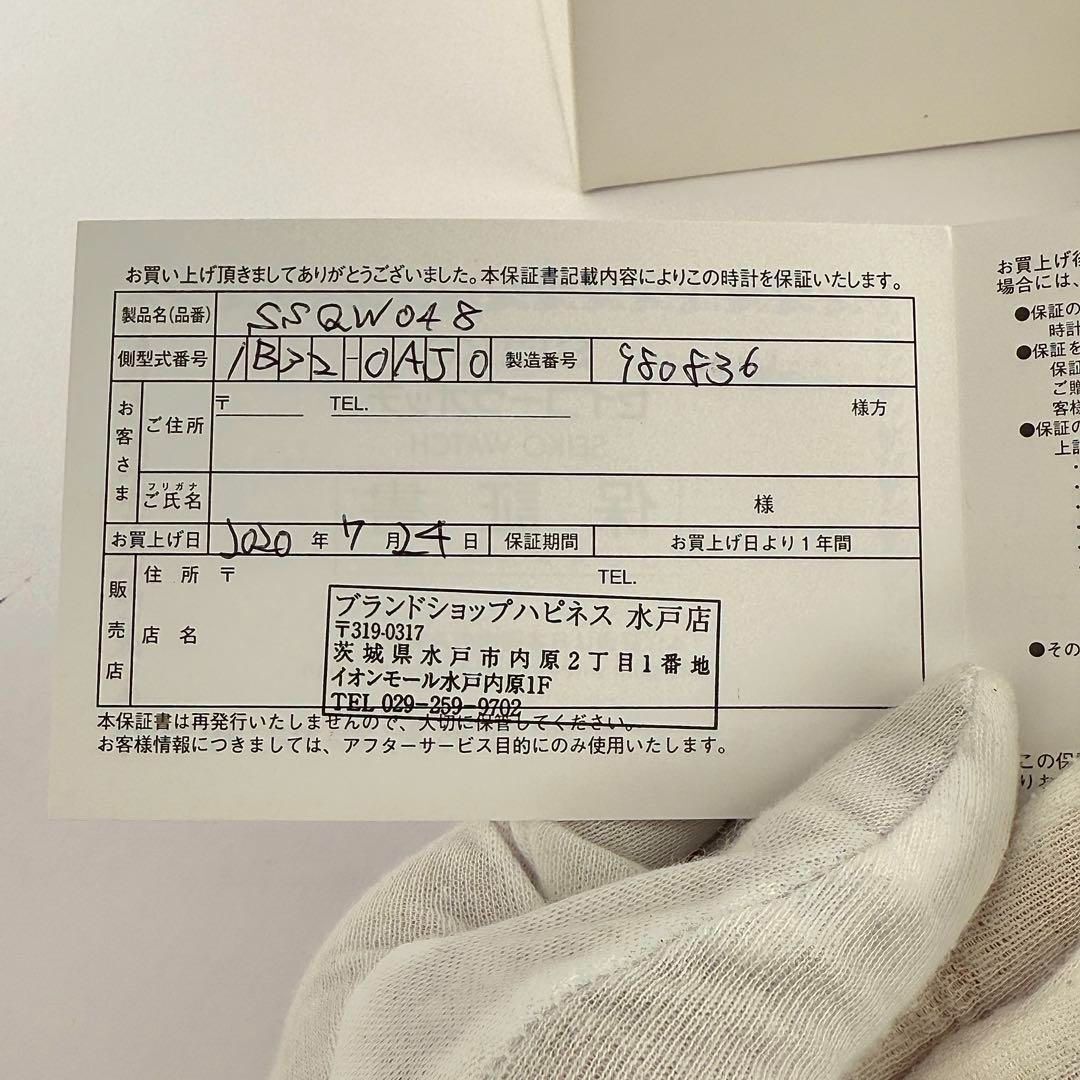 お買い上げ頂きましてありがとうございました。本保証書記載内容によりこの時計を保証いたします。
製品名(品番) SSQW048
側型式番号 1B22-0AJ0 製造番号 980836
お客さま
ご住所 〒 TEL. 様方
フリガナ
ご氏名 様
お買上げ日 2020 年 7 月 24 日 保証期間 お買上げ日より1年間
販売店
住所 〒 TEL.
店名
ブランドショップハピネス 水戸店
〒319-0317
茨城県水戸市内原2丁目1番地
イオンモール水戸内原1F
TEL 029-259-9702
本保証書は再発行いたしませんので、大切に保管してください。
お客様情報につきましては、アフターサービス目的にのみ使用いたします。
お買上げ後
場合には、
●保証の
時計
●保証を
保証
ご贈
客様
●保証の
上記
●その
この保
りお